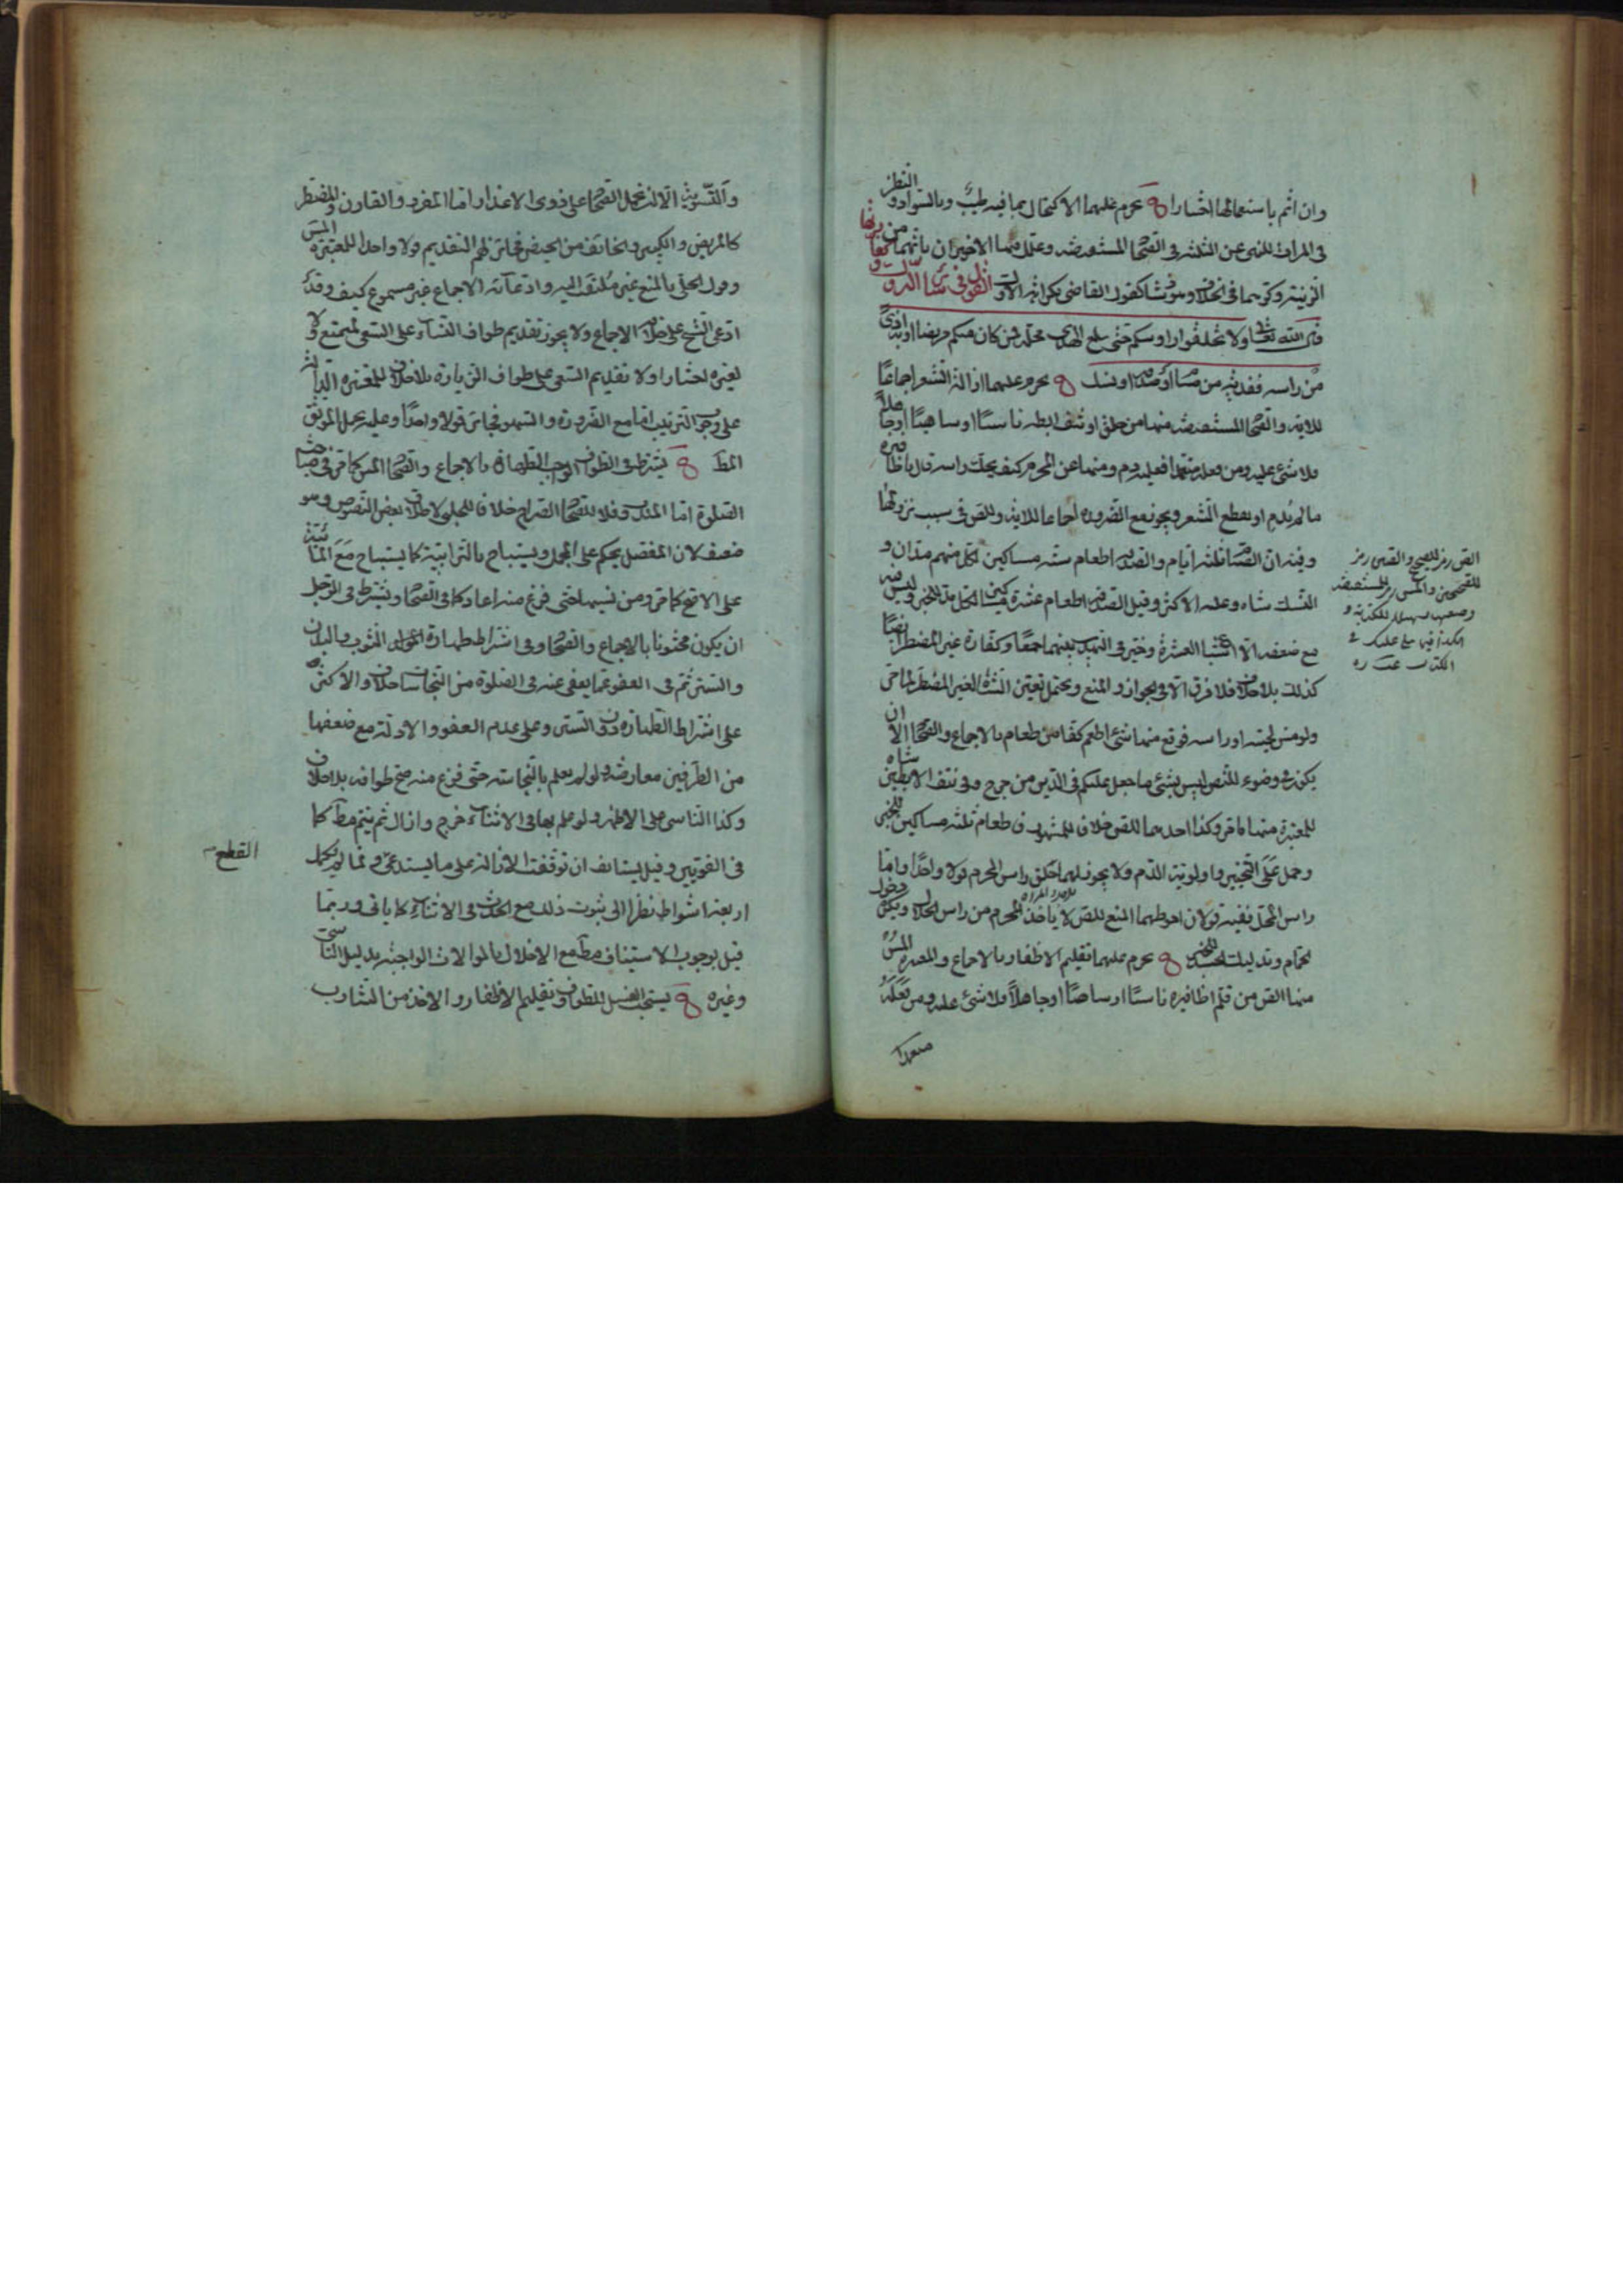 وان اثم باستعمالها اختيارا يحرم عليهما الاكتحال بما فيه طيب وبالسواد و النظر
فى المرات للنهى عن الثلثة فى الصحاح المستفيضة وعلل فيها الاخيران بانهما من
الزينة وكرهها فى الخلاف وهو شاذ كقول القاضى بكراهة الاول القول فى
قال الله تعالى ولا تحلقوا رؤسكم حتى يبلغ الهدى محله فمن كان منكم مريضا او به اذى
من راسه ففدية من صيام او صدقة او نسك يحرم عليهما ازالة الشعر اجماعا
للاية والصحاح المستفيضة منها من حلق او نتف ابطه ناسيا او ساهيا او جاهلا
فلا شئ عليه ومن فعله متعمدا فعليه دم ومنها عن المحرم كيف يحك راسه قال باظافيره
ما لم يدم او يقطع الشعر ويجوز مع الضرورة اجماعا للاية وللص فى سبب نزولها
وفيه ان الصيام ثلثة ايام والصدقة اطعام ستة مساكين لكل منهم مدان و
النسك شاة وعليه الاكثر وقيل الصدقة اطعام عشرة مساكين لكل مد للخبر وليس فيه
مع ضعفه الا اشباع العشرة وخير فى التهذيب بينهما جمعا وكفارة غير المضطر ايضا
كذلك بلا خلاف فلا فرق الا فى الجواز و المنع ويحتمل تعين الشاة لغير المضطر لما مر
ولو مس لحيته او راسه فوقع منهما شئ اطعم كفا من طعام بالاجماع والصحاح الا ان
يكون فى وضوء للنص ليس بشئ ما جعل عليكم فى الدين من حرج وفى نتف الابطين شاة
للمعتبرة منها ما مر وكذا احدهما للص خلافا للمشهور فاطعام ثلثة مساكين للخبر
وحمل على التخيير واولوية الدم ولا يجوز لهما حلق راس المحرم قولا واحدا واما
راس المحل ففيه قولان احوطهما المنع للص لا ياخذ المحرم من راس الحلال ويكره دخول
الحمام وتدليك الجسد للخبر يحرم عليهما تقليم الاظفار بالاجماع والمعتبرة المس
منها الص من قلم اظافيره ناسيا او ساهيا او جاهلا فلا شئ عليه ومن فعله
متعمدا
الص رمز للصحيح و الصين رمز
للصحيحين والمس رمز للمستفيضة
الكتاب
والتسوية الا انه نحمل الصحاح على ذوى الاعذار اما المفرد و القارن و المضطر
كالمريض و الكبير والخائف من الحيض فجائز لهم التقديم قولا واحدا للمعتبرة المس
وقول الحلى بالمنع غير ملتفت اليه وادعائه الاجماع غير مسموع كيف وقد
ادعى الشيخ على خلافه الاجماع ولا يجوز تقديم طواف النساء على السعى لمتمتع و لا
لغيره اختيارا ولا تقديم السعى على طواف الزيارة بلا خلاف للمعتبرة الدالة
على وجوب الترتيب اما مع الضرورة و السهو فجائز قولا واحدا وعليه يحمل الموثق
المط يشترط فى الطواف الواجب الطهارة بالاجماع والصحاح المس كما مر فى مباحث
الصلوة اما المندوب فلا للصحاح الصراح خلافا للحلبى لاطلاق بعض النصوص وهو
ضعيف لان المفصل يحكم على المجمل ويستباح بالترابية كما يستباح مع المائية
على الاصح كما مر ومن نسيها حتى فرغ منه اعاد كما فى الصحاح ويشترط فى الرجل
ان يكون مختونا بالاجماع والصحاح وفى اشتراط طهارة الثوب والبدن
والستر ثم فى العفو عما يعفى عنه فى الصلوة من النجاسات خلاف والاكثر
على اشتراط الطهارة دون الستر وعلى عدم العفو والادلة مع ضعفها
من الطرفين معارضة ولو لم يعلم بالنجاسة حتى فرغ منه صح طوافه بلا خلاف
وكذا الناسى على الاظهر ولو علم بها فى الاثناء خرج وازال ثم يتم مط كما
فى القويين وقيل يستانف ان توقفت الازالة على ما يستدعى ولما يكمل
القطع
اربعة اشواط نظرا الى ثبوت ذلك مع الحدث فى الاثناء كما ياتى وربما
قيل بوجوب الاستيناف مط مع الاخلال بالموالاة الواجبة بدليل التاسى
وغيره يستحب الغسل للطواف وتقليم الاظفار و الاخذ من الشارب